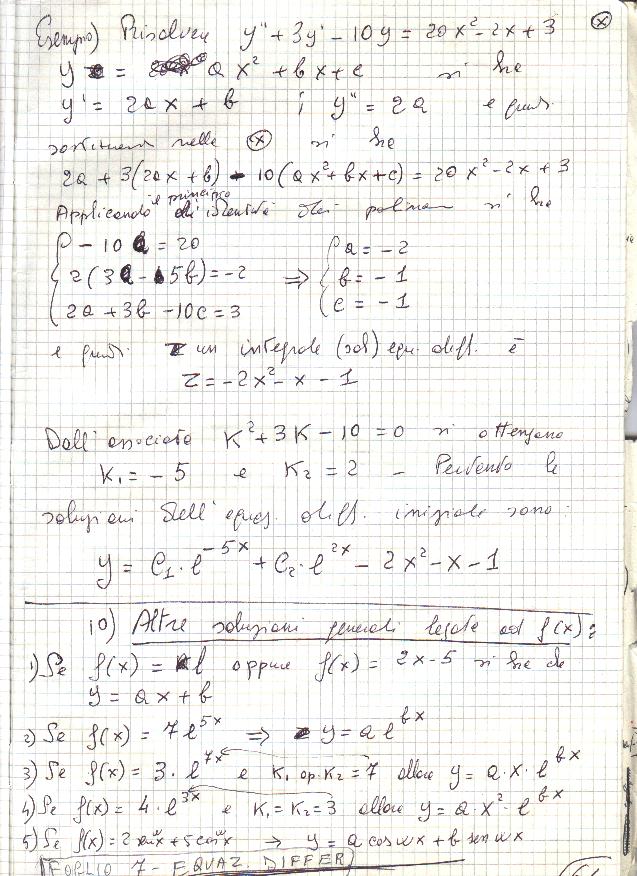 Esempio) Risolvere y'' + 3y' - 10y = 20x² - 2x + 3 (x)
y = ax² + bx + c si ha
y' = 2ax + b ; y'' = 2a e quindi
sostituendo nella (x) si ha
2a + 3(2ax + b) - 10(ax² + bx + c) = 20x² - 2x + 3
Applicando il principio di identità dei polinomi si ha
{ -10a = 20 { a = -2
{ 2(3a - 5b) = -2 ⇒ { b = -1
{ 2a + 3b - 10c = 3 { c = -1
e quindi z un integrale (sol) equ. diff. è
z = -2x² - x - 1
Dall'associata K² + 3K - 10 = 0 si ottengono
K₁ = -5 e K₂ = 2 - Pertanto le
soluzioni dell'equaz. diff. iniziale sono:
y = C₁·e^-5x + C₂·e^2x - 2x² - x - 1
10) Altre soluzioni generali legate ad f(x):
1) Se f(x) = oppure f(x) = 2x - 5 si ha che
y = ax + b
2) Se f(x) = 7e^5x ⇒ y = a e^bx
3) Se f(x) = 3·e^7x e K₁ op. K₂ = 7 allora y = a·x·e^bx
4) Se f(x) = 4·e^3x e K₁ = K₂ = 3 allora y = a·x²·e^bx
5) Se f(x) = 2 sen wx + 5 cos wx ⇒ y = a cos wx + b sen wx
(FOGLIO 7 - EQUAZ. DIFFER)